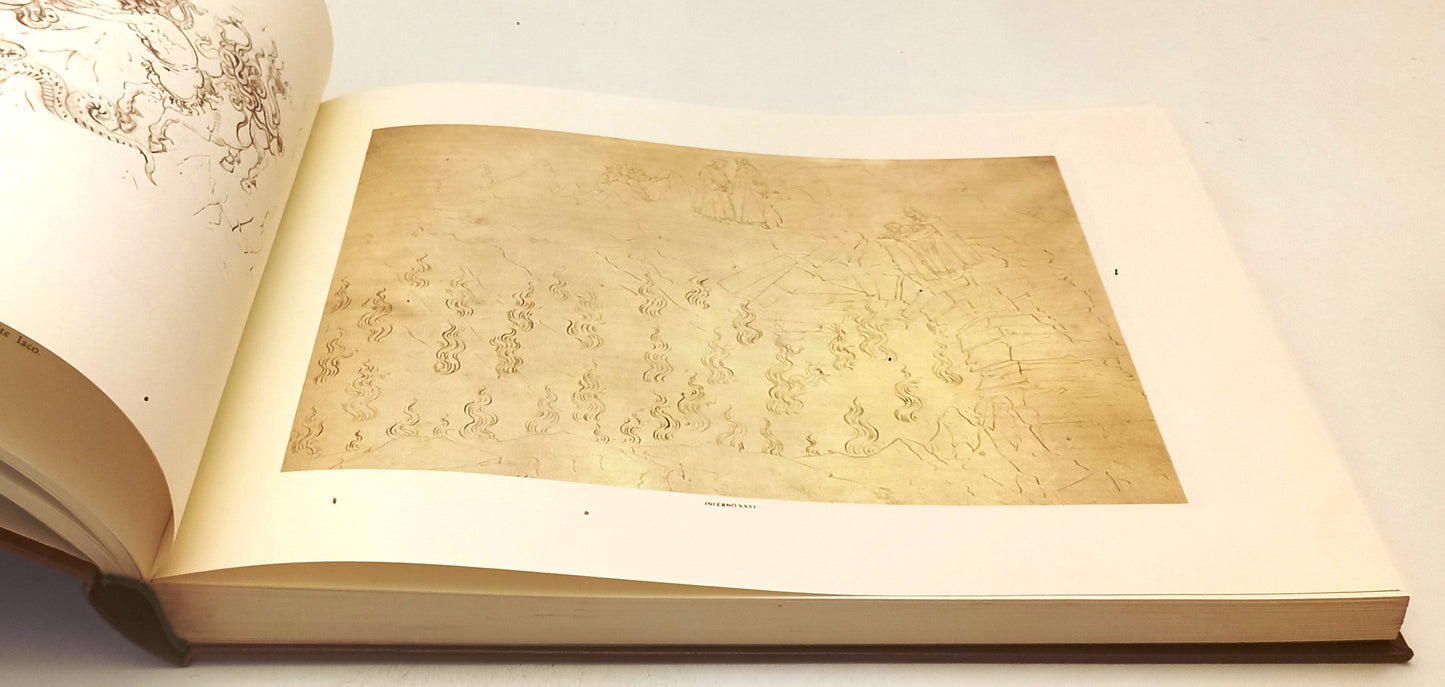 laco.
INFERNO XXVI